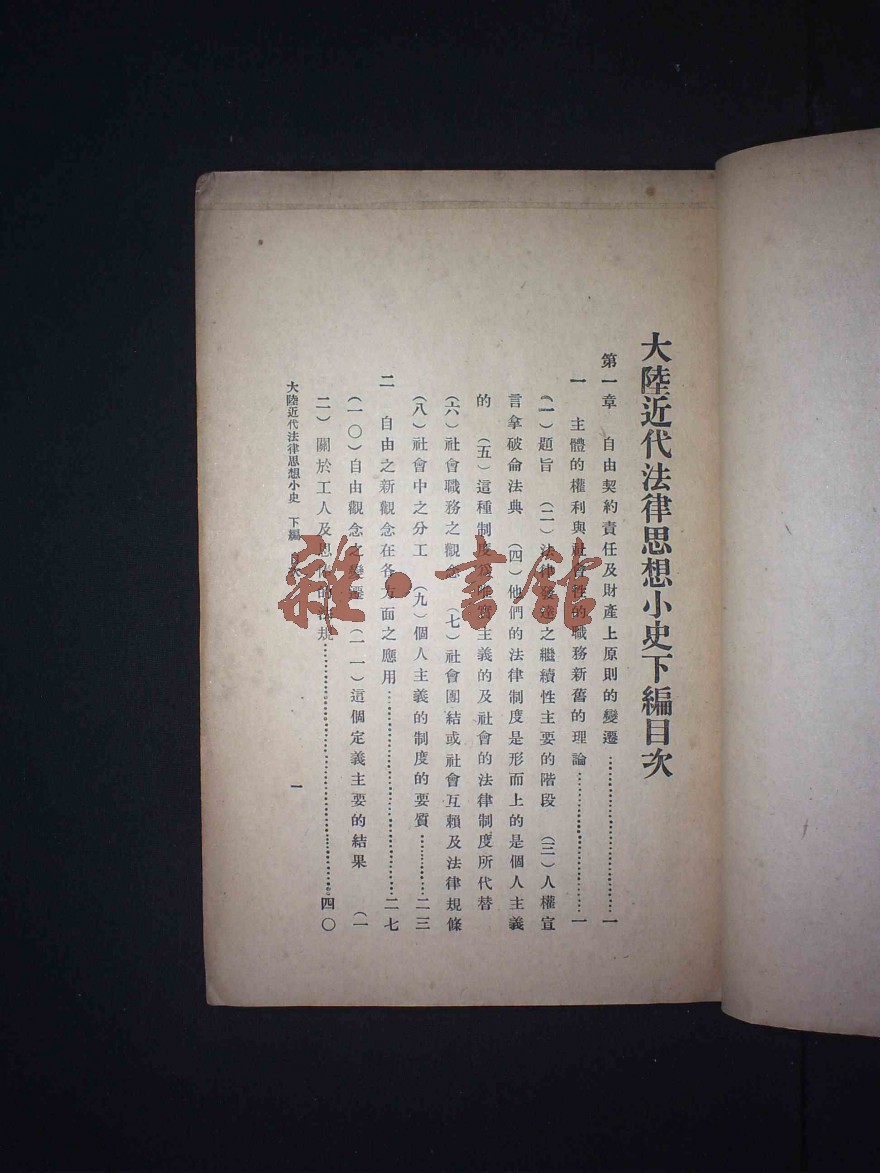 大陸近代法律思想小史下編目次
第一章　自由契約責任及財產上原則的變遷……………一
一　主體的權利與社會性的職務新舊的理論……………一
(一)題旨　(二)法律發達之繼續性主要的階段　(三)人權宣
言拿破侖法典　(四)他們的法律制度是形而上的是個人主義
的　(五)這種制度爲唯實主義的及社會的法律制度所代替
(六)社會職務之觀念　(七)社會團結或社會互賴及法律規條
(八)社會中之分工　(九)個人主義的制度的要質…………二三
二　自由之新觀念在各方面之應用……………二七
(一〇)自由觀念之變遷　(一一)這個定義主要的結果　(一
二)關於工人及的法規……………四〇
大陸近代法律思想小史　下編　目次
一
雜·書館